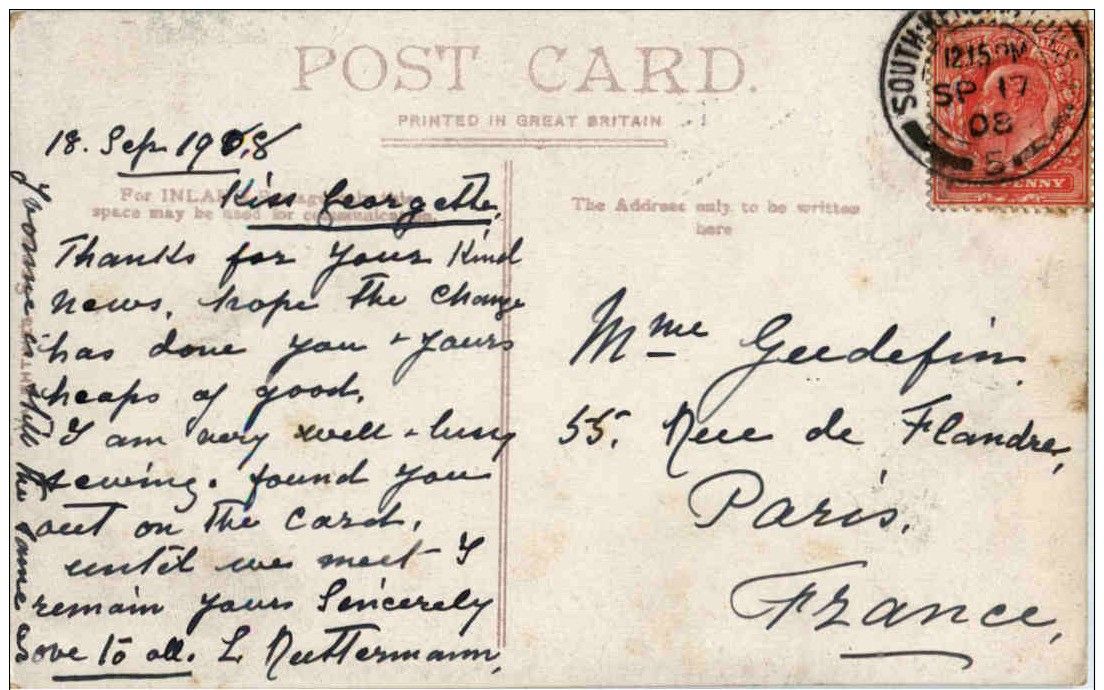 POST CARD.
PRINTED IN GREAT BRITAIN
SOUTH KENSINGTON
12.15 PM
SP 17
08
5
PENNY
18. Sep. 1908
For INLAND
space may be used for communication.
The Address only to be written
here
Kiss Georgette,
Thanks for your Kind
news, hope the change
has done you + yours
heaps of good.
I am very well + busy
sewing. found you
out on the card.
until we meet I
remain yours Sincerely
Love to all. L Nuttermann,
Yvonne is still the same
Mme Guedefin.
55, Rue de Flandre,
Paris.
France,